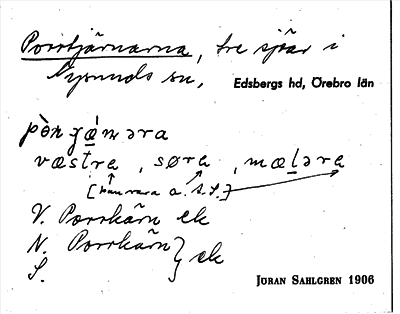 Porrtjärnarna, tre sjöar i
Nysunds sn, Edsbergs hd, Örebro län
væstra, søra, mæləra
[kan vara a. S. S.]
V. Porrkärn ek
N. Porrkärn } ek
S.
JÖRAN SAHLGREN 1906